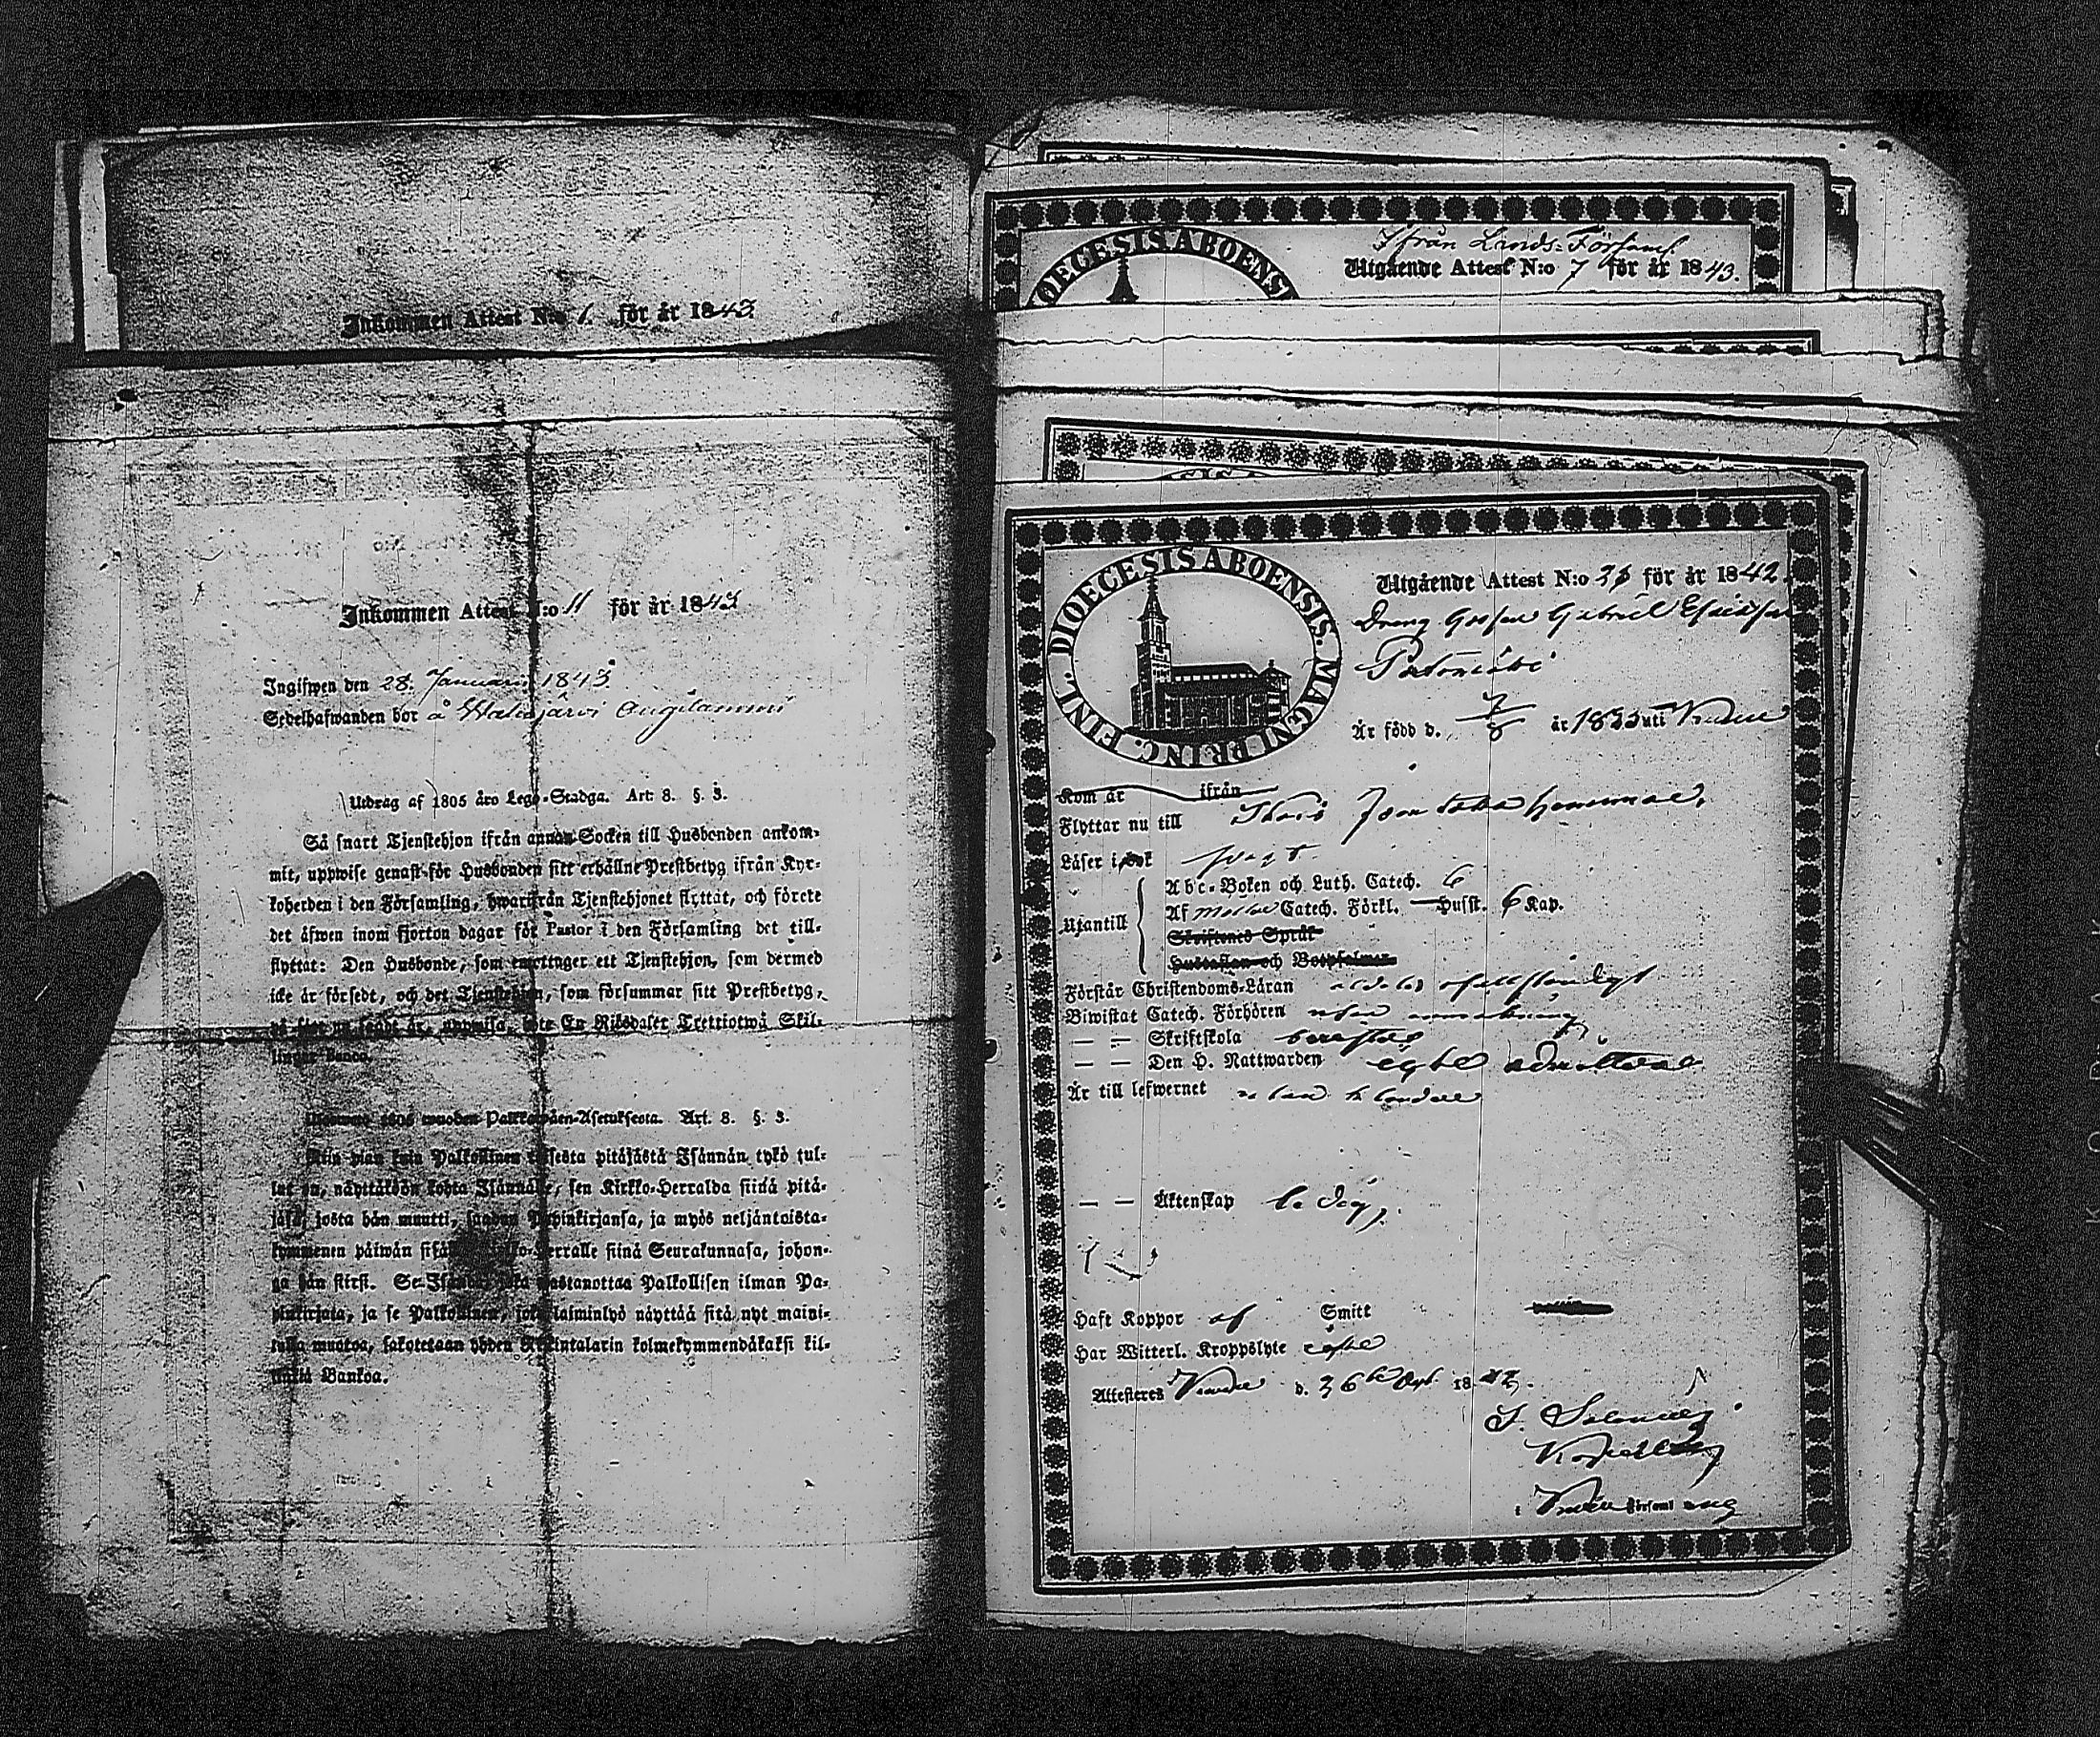 Inkommen Attest N:o 1. för år 1843.
Inkommen Attest N:o 11 för år 1843
Ingifwen den 28. Januari 1843.
Sedelhafwanden bor å
Utdrag af 1805 års Lego-Stadga. Art. 8. §. 3.
Så snart Tjenstehjon ifrån annan Socken till Husbonden ankom-
mit, uppwise genast för Husbonden sitt erhållne Prestbetyg ifrån Kyr-
koherden i den Församling, hwarifrån Tjenstehjonet flyttat, och förete
det äfwen inom fjorton dagar för Pastor i den Församling det till-
flyttat: Den Husbonde, som emottager ett Tjenstehjon, som dermed
icke är försedt, och det Tjenstehjon, som försummar sitt Prestbetyg,
på sätt nu sagdt är, uppwisa, böte En Riksdaler Trettiotwå Skil-
lingar Banco.
1805 wuoden Palkkawäen-Asetuksesta. Art. 8. §. 3.
Niin pian kuin Palkollinen toisesta pitäjästä Isännän tykö tul-
lut on, näyttäköön kohta Isännälle, sen Kirkko-Herralda siinä pitä-
jäsä, josta hän muutti, saadun Papinkirjansa, ja myös neljäntoista-
kymmenen päiwän sisällä Kirkko-Herralle siinä Seurakunnasa, johon-
ga hän siirsi. Se Isändä, joka wastanottaa Palkollisen ilman Pa-
pinkirjata, ja se Palkollinen, joka laiminlyö näyttää sitä nyt maini-
tulla muotoa, sakotetaan yhden Riikintalarin kolmekymmendäkaksi kil-
linkiä Bankoa.
Ifrån Lands-Församl.
DIOECESIS ABOENSIS
Utgående Attest N:o 7 för år 1843.
DIOECESIS ABOENSIS. MAGNI PRINC. FINL.
Utgående Attest N:o för år 1842.
Dreng Gossen Gabriel
Är född d. 7/8 år uti
Kom år ifrån
Flyttar nu till
Läser i bok
Utantill
Abc-Boken och Luth. Catech. 6
Af Catech. Förkl. — Hufst. 6 Kap.
Skriftenes Språk
Hustaflan och Botpsalmer
Förstår Christendoms-Läran
Biwistat Catech. Förhören utan anmärkning
— — Skriftskola bewistat
— — Den H. Nattwarden admitterad
Är till lefwernet oklandrad
— — Äktenskap ledig.
Haft Koppor af Smitt
Har Witterl. Kroppslyte
Attesteres d. 18 42.
Församling